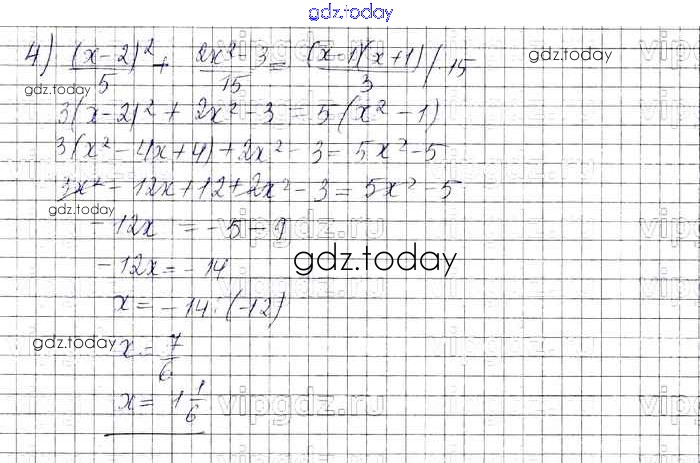 gdz.today
4) (x-2)²/5 + (2x²-3)/15 = (x-1)(x+1)/3 /·15
gdz.today
gdz.today
3(x-2)² + 2x² - 3 = 5(x² - 1)
3(x² - 4x + 4) + 2x² - 3 = 5x² - 5
3x² - 12x + 12 + 2x² - 3 = 5x² - 5
gdz.today
-12x = -5 - 9
gdz.today
-12x = -14
x = -14 : (-12)
gdz.today
gdz.today
x = 7/6
x = 1 1/6
vipgdz.ru